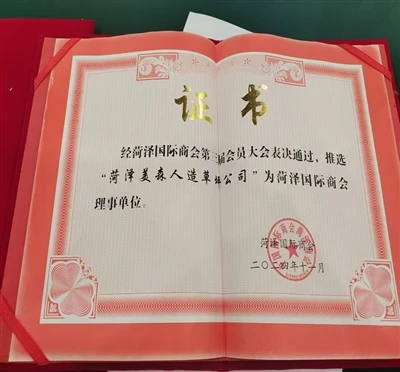 证书
经菏泽国际商会第三届会员大会表决通过，推选
“菏泽美森人造草坪公司”为菏泽国际商会
理事单位。
菏泽国际商会
二〇二四年十一月